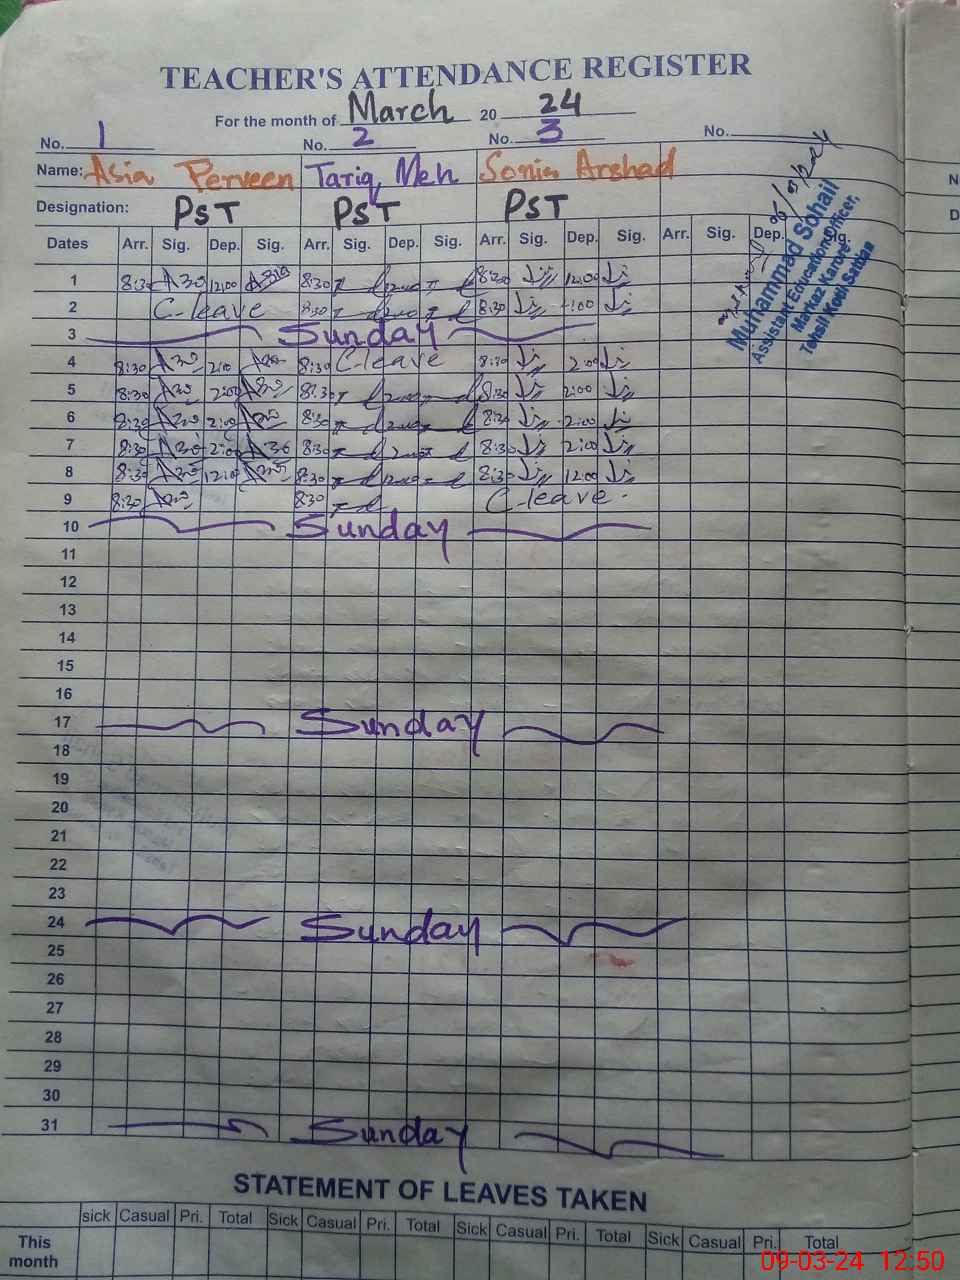 TEACHER'S ATTENDANCE REGISTER
For the month of March 2024
No. 1 No. 2 No. 3 No.
Name: Asia Perveen Tariq Meh Sonia Arshad
Designation: PST PST PST
Dates Arr. Sig. Dep. Sig. Arr. Sig. Dep. Sig. Arr. Sig. Dep. Sig. Arr. Sig. Dep. Sig.
1 8:30 12:00 8:30 8:30 12:00
2 C-leave 8:30 8:30
3 Sunday
4 8:30 8:30 C-leave 8:30 2:00
5 8:30 2:00 8:30 8:30 2:00
6 8:30 2:00 8:30 8:30 2:00
7 8:30 2:00 8:30 8:30 2:00
8 8:30 8:30 8:30 12:00
9 8:30 8:30 C-leave.
10 Sunday
11
12
13
14
15
16
17 Sunday
18
19
20
21
22
23
24 Sunday
25
26
27
28
29
30
31 Sunday
Muhammad Sohail
Assistant Education Officer,
Markaz Karore
STATEMENT OF LEAVES TAKEN
sick Casual Pri. Total Sick Casual Pri. Total Sick Casual Pri. Total Sick Casual Pri. Total
This month
09-03-24 12:50